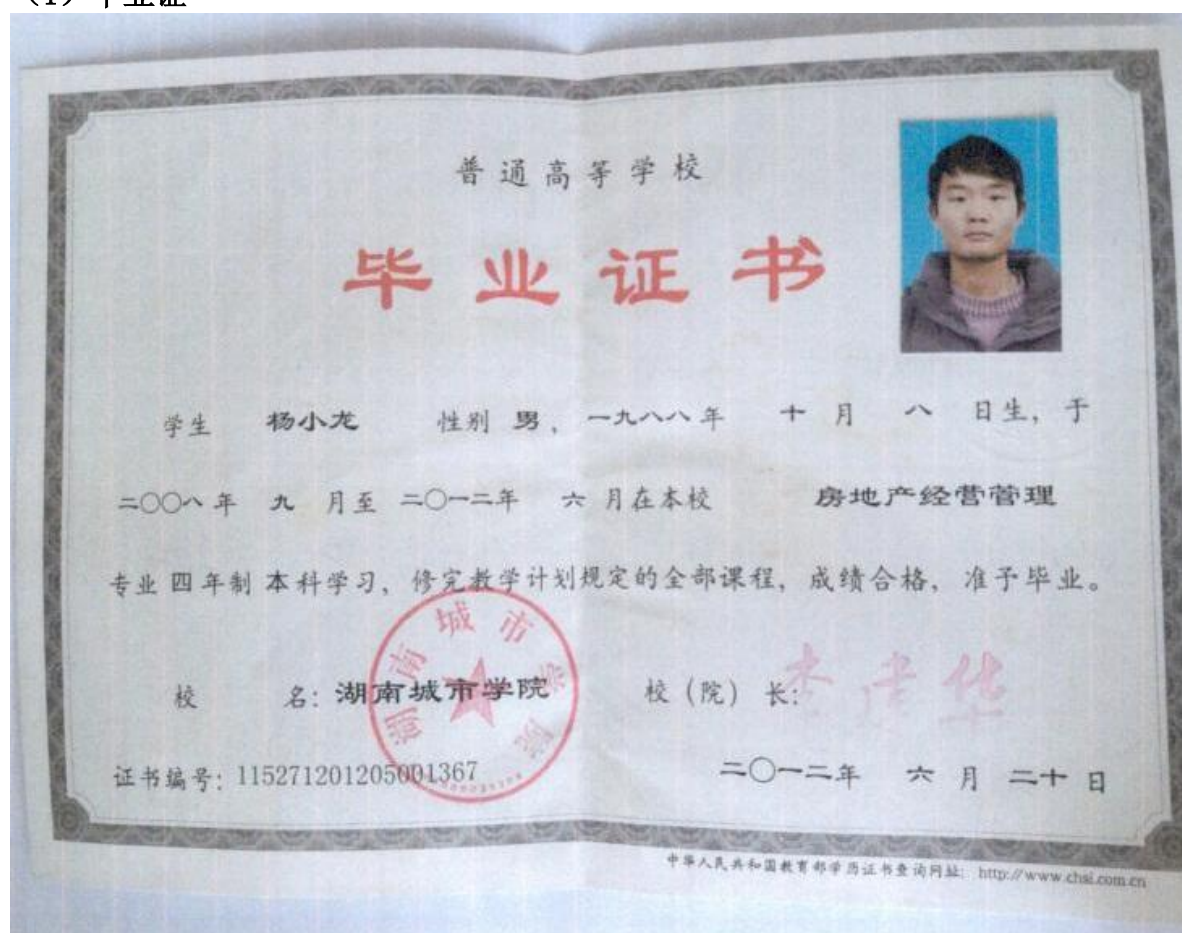 (1)毕业证
普通高等学校
毕业证书
学生 杨小龙 性别 男, 一九八八年 十 月 八 日生, 于
二〇〇八年 九 月至 二〇一二年 六 月在本校 房地产经营管理
专业 四 年制 本科学习, 修完教学计划规定的全部课程, 成绩合格, 准予毕业。
湖南城市学院
校 名: 湖南城市学院 校(院)长:
证书编号: 115271201205001367 二〇一二年 六 月 二十 日
中华人民共和国教育部学历证书查询网址: http://www.chsi.com.cn